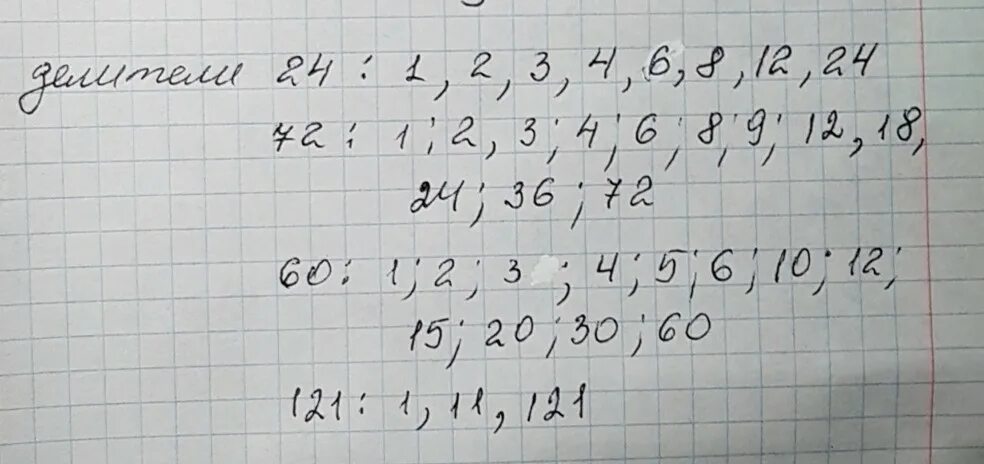 делители 24 : 1, 2, 3, 4, 6, 8, 12, 24
72 : 1; 2, 3; 4; 6; 8; 9; 12, 18,
24; 36; 72
60: 1; 2; 3 ; 4; 5; 6; 10; 12;
15; 20; 30; 60
121: 1, 11, 121